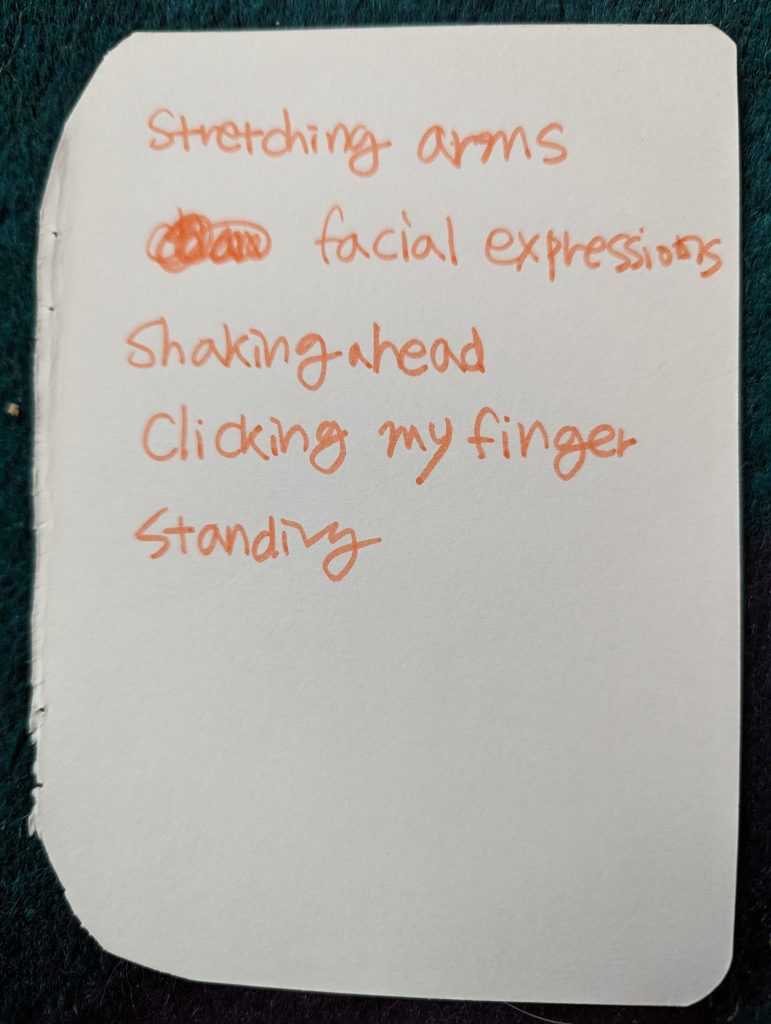 Stretching arms
facial expressions
Shaking ahead
Clicking my finger
Standing